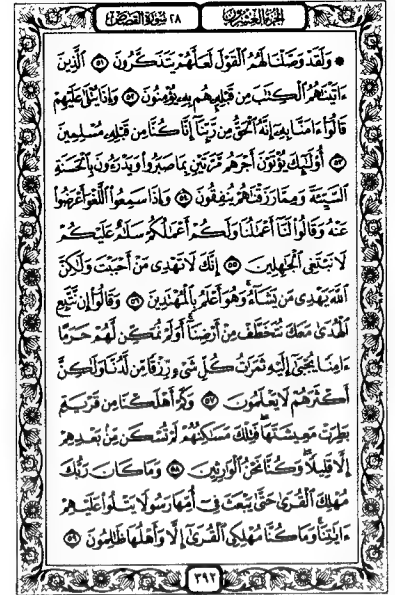 الجزء العشرون ٢٨ سورة القصص
۞ وَلَقَدْ وَصَّلْنَا لَهُمُ الْقَوْلَ لَعَلَّهُمْ يَتَذَكَّرُونَ ٥١ الَّذِينَ
ءَاتَيْنَٰهُمُ الْكِتَٰبَ مِن قَبْلِهِۦ هُم بِهِۦ يُؤْمِنُونَ ٥٢ وَإِذَا يُتْلَىٰ عَلَيْهِمْ
قَالُوٓا۟ ءَامَنَّا بِهِۦٓ إِنَّهُ الْحَقُّ مِن رَّبِّنَآ إِنَّا كُنَّا مِن قَبْلِهِۦ مُسْلِمِينَ
٥٣ أُو۟لَٰٓئِكَ يُؤْتَوْنَ أَجْرَهُم مَّرَّتَيْنِ بِمَا صَبَرُوا۟ وَيَدْرَءُونَ بِالْحَسَنَةِ
السَّيِّئَةَ وَمِمَّا رَزَقْنَٰهُمْ يُنفِقُونَ ٥٤ وَإِذَا سَمِعُوا۟ اللَّغْوَ أَعْرَضُوا۟
عَنْهُ وَقَالُوا۟ لَنَآ أَعْمَٰلُنَا وَلَكُمْ أَعْمَٰلُكُمْ سَلَٰمٌ عَلَيْكُمْ
لَا نَبْتَغِى الْجَٰهِلِينَ ٥٥ إِنَّكَ لَا تَهْدِى مَنْ أَحْبَبْتَ وَلَٰكِنَّ
اللَّهَ يَهْدِى مَن يَشَآءُ وَهُوَ أَعْلَمُ بِالْمُهْتَدِينَ ٥٦ وَقَالُوٓا۟ إِن نَّتَّبِعِ
الْهُدَىٰ مَعَكَ نُتَخَطَّفْ مِنْ أَرْضِنَآ أَوَلَمْ نُمَكِّن لَّهُمْ حَرَمًا
ءَامِنًا يُجْبَىٰٓ إِلَيْهِ ثَمَرَٰتُ كُلِّ شَىْءٍ رِّزْقًا مِّن لَّدُنَّا وَلَٰكِنَّ
أَكْثَرَهُمْ لَا يَعْلَمُونَ ٥٧ وَكَمْ أَهْلَكْنَا مِن قَرْيَةٍۭ
بَطِرَتْ مَعِيشَتَهَا فَتِلْكَ مَسَٰكِنُهُمْ لَمْ تُسْكَن مِّنۢ بَعْدِهِمْ
إِلَّا قَلِيلًا وَكُنَّا نَحْنُ الْوَٰرِثِينَ ٥٨ وَمَا كَانَ رَبُّكَ
مُهْلِكَ الْقُرَىٰ حَتَّىٰ يَبْعَثَ فِىٓ أُمِّهَا رَسُولًا يَتْلُوا۟ عَلَيْهِمْ
ءَايَٰتِنَا وَمَا كُنَّا مُهْلِكِى الْقُرَىٰٓ إِلَّا وَأَهْلُهَا ظَٰلِمُونَ ٥٩
٣٩٢